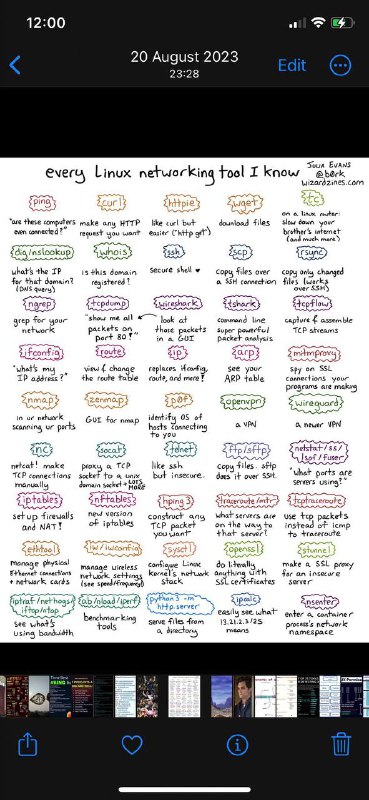 12:00
20 August 2023
23:28
Edit
every Linux networking tool I know
JULIA EVANS
@b0rk
wizardzines.com
ping
"are these computers
even connected?"
curl
make any HTTP
request you want
httpie
like curl but
easier ("http get")
wget
download files
tc
on a linux router:
slow down your
brother's internet
(and much more)
dig/nslookup
what's the IP
for that domain?
(DNS query)
whois
is this domain
registered?
ssh
secure shell ♥
scp
copy files over
a SSH connection
rsync
copy only changed
files (works
over SSH)
ngrep
grep for your
network
tcpdump
"show me all
packets on
port 80!"
wireshark
look at
those packets
in a GUI
tshark
command line
super powerful
packet analysis
tcpflow
capture & assemble
TCP streams
ifconfig
"what's my
IP address?"
route
view & change
the route table
ip
replaces ifconfig,
route, and more!
arp
see your
ARP table
mitmproxy
spy on SSL
connections your
programs are making
nmap
in ur network
scanning ur ports
zenmap
GUI for nmap
p0f
identify OS of
hosts connecting
to you
openvpn
a VPN
wireguard
a newer VPN
nc
netcat! make
TCP connections
manually
socat
proxy a TCP
socket to a unix
domain socket + LOTS
MORE
telnet
like ssh
but insecure
ftp/sftp
copy files. sftp
does it over SSH.
netstat/ss/
lsof/fuser
"what ports are
servers using?"
iptables
set up firewalls
and NAT!
nftables
new version
of iptables
hping3
construct any
TCP packet
you want
traceroute/mtr
what servers are
on the way to
that server?
tcptraceroute
use tcp packets
instead of icmp
to traceroute
ethtool
manage physical
Ethernet connections
+ network cards
iw/iwconfig
manage wireless
network settings
(see speed/frequency)
sysctl
configure Linux
kernel's network
stack
openssl
do literally
anything with
SSL certificates
stunnel
make a SSL proxy
for an insecure
server
iptraf/nethogs/
iftop/ntop
see what's
using bandwidth
ab/nload/iperf
benchmarking
tools
python3 -m
http.server
serve files from
a directory
ipcalc
easily see what
13.21.2.3/25
means
nsenter
enter a container
process's network
namespace